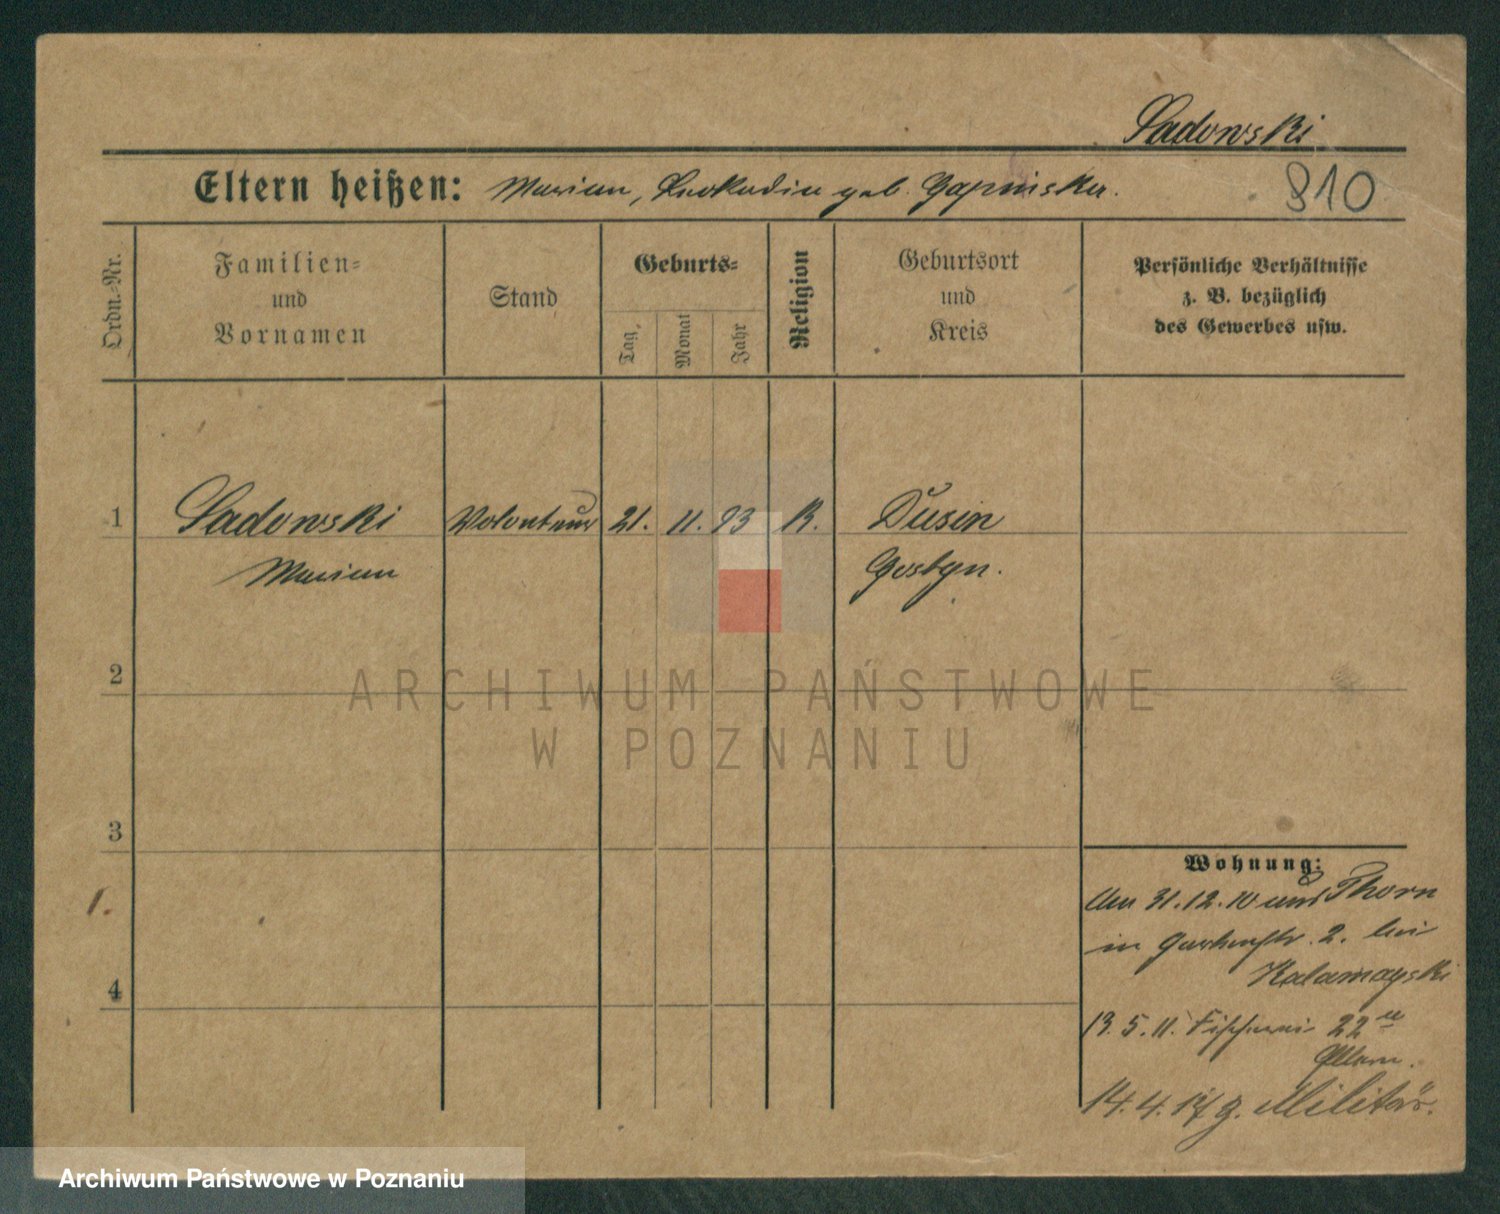 Sadowski
Eltern heißen: Marian, Leokadia geb. Gapniska.
810
Ordn.-Nr.
Familien-
und
Vornamen
Stand
Geburts-
Tag.
Monat
Jahr
Religion
Geburtsort
und
Kreis
Persönliche Verhältnisse
z. B. bezüglich
des Gewerbes usw.
1 Sadowski Volontär 21. 11. 93 K. Dusin
Marian Gostyn.
2
3
4
1.
Wohnung:
Am 31.12.10 aus Thorn
in Gartenstr. 2. bei
13.5.11. Fischerei 22
Eltern.
14.4.17 z. Militär.
ARCHIWUM PAŃSTWOWE
W POZNANIU
Archiwum Państwowe w Poznaniu